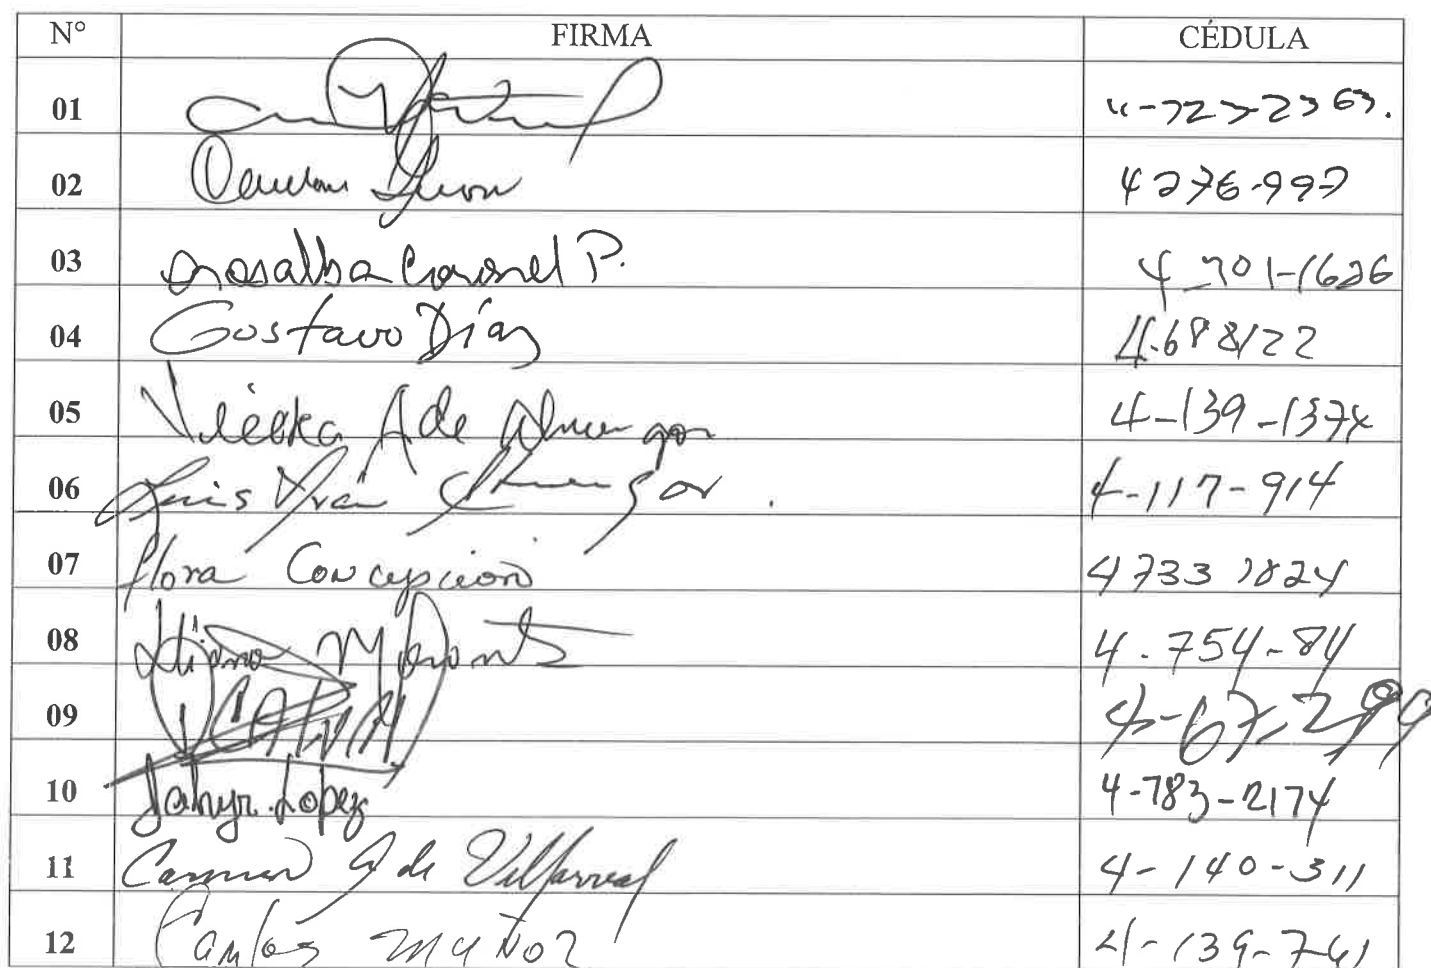 N° FIRMA CÉDULA
01 4-727-2363.
02 4 276-997
03 Rosalba Coronel P. 4-701-1626
04 Gustavo Díaz 4-688122
05 A de Almengor 4-139-1374
06 Luis Iván Almengor. 4-117-914
07 Flora Concepción 4 733 1824
08 4.754-84
09 4-67-299
10 Lopez 4-783-2174
11 Carmen G de Villarreal 4-140-311
12 Carlos Muñoz 4-139-741